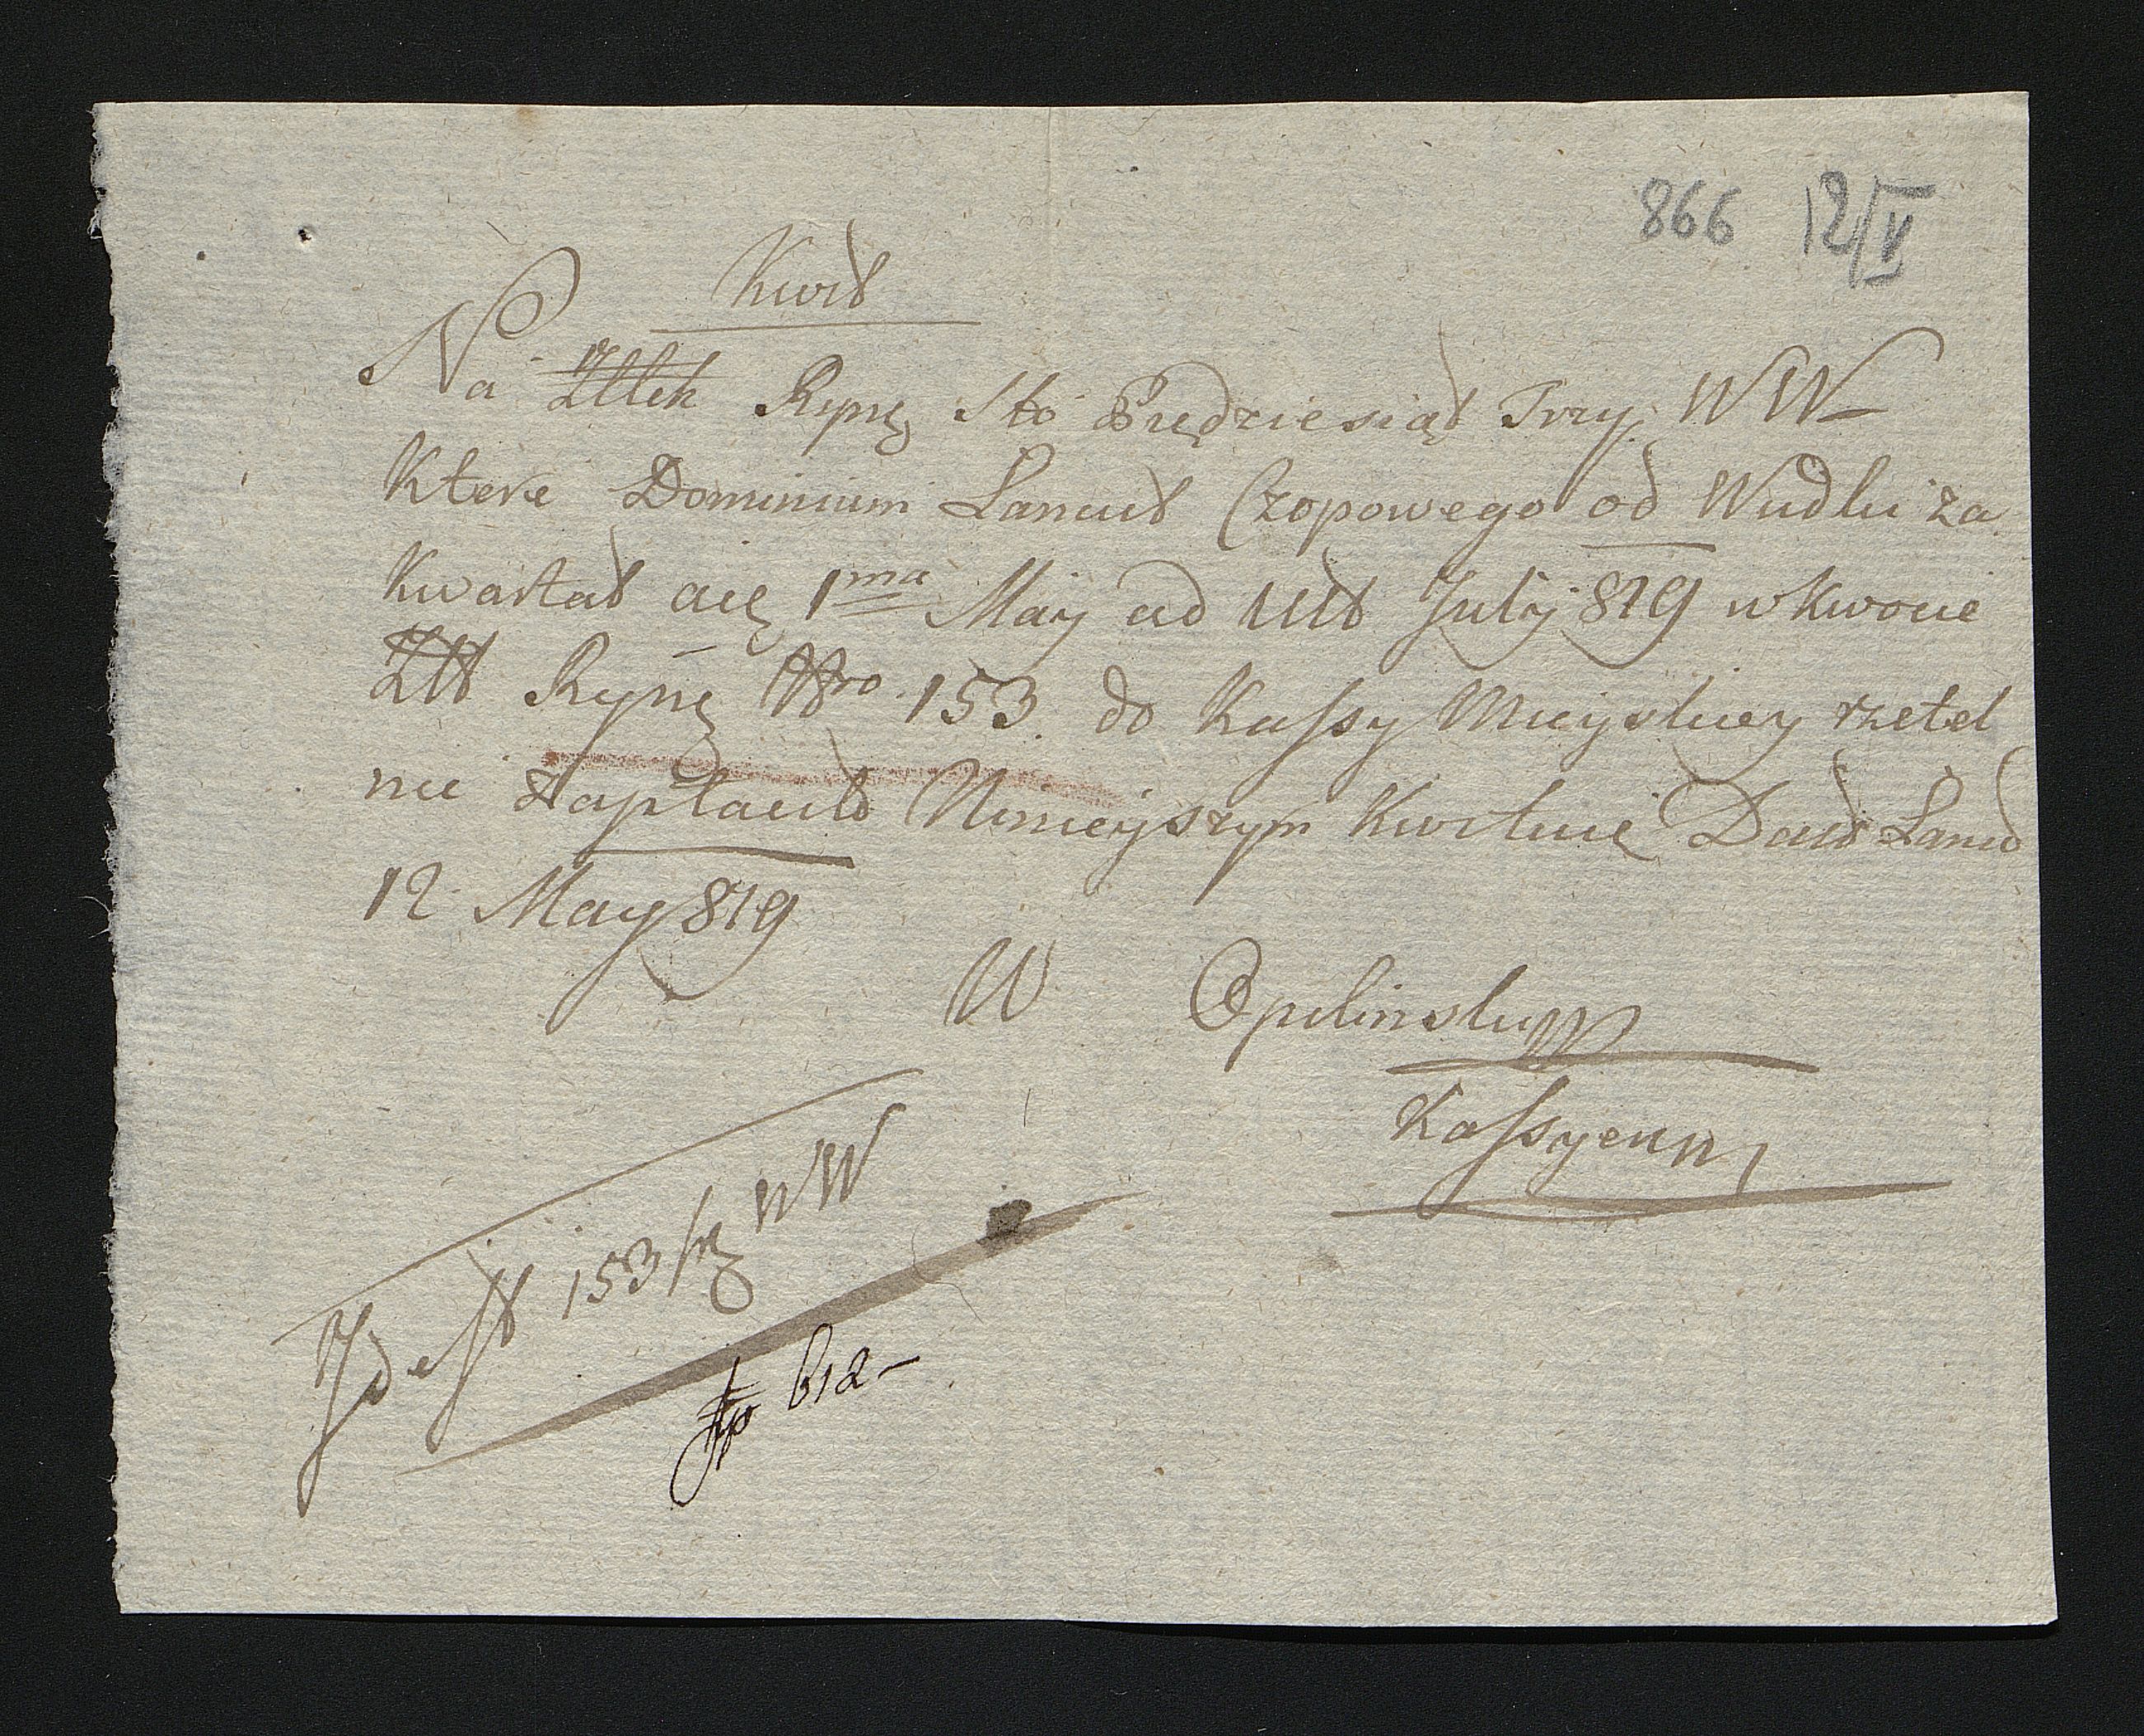 866 12/V
Kwit
Na Złlch Rynę Sto Piędziesiąt Trzy WW
Ktere Dominium Lancut Czopowego od Wudki za
Kwartał aię 1ma May ad Ult July 819 w kwocie
Złt Rynę Nro 153. do Kassy Mieyskiey rzetel
nie zapłacił Ninieyszym Kwituię Datt Lancut
12 May 819
W Opilinski
Kassyer
Id est 153 frę WW
fp 612-